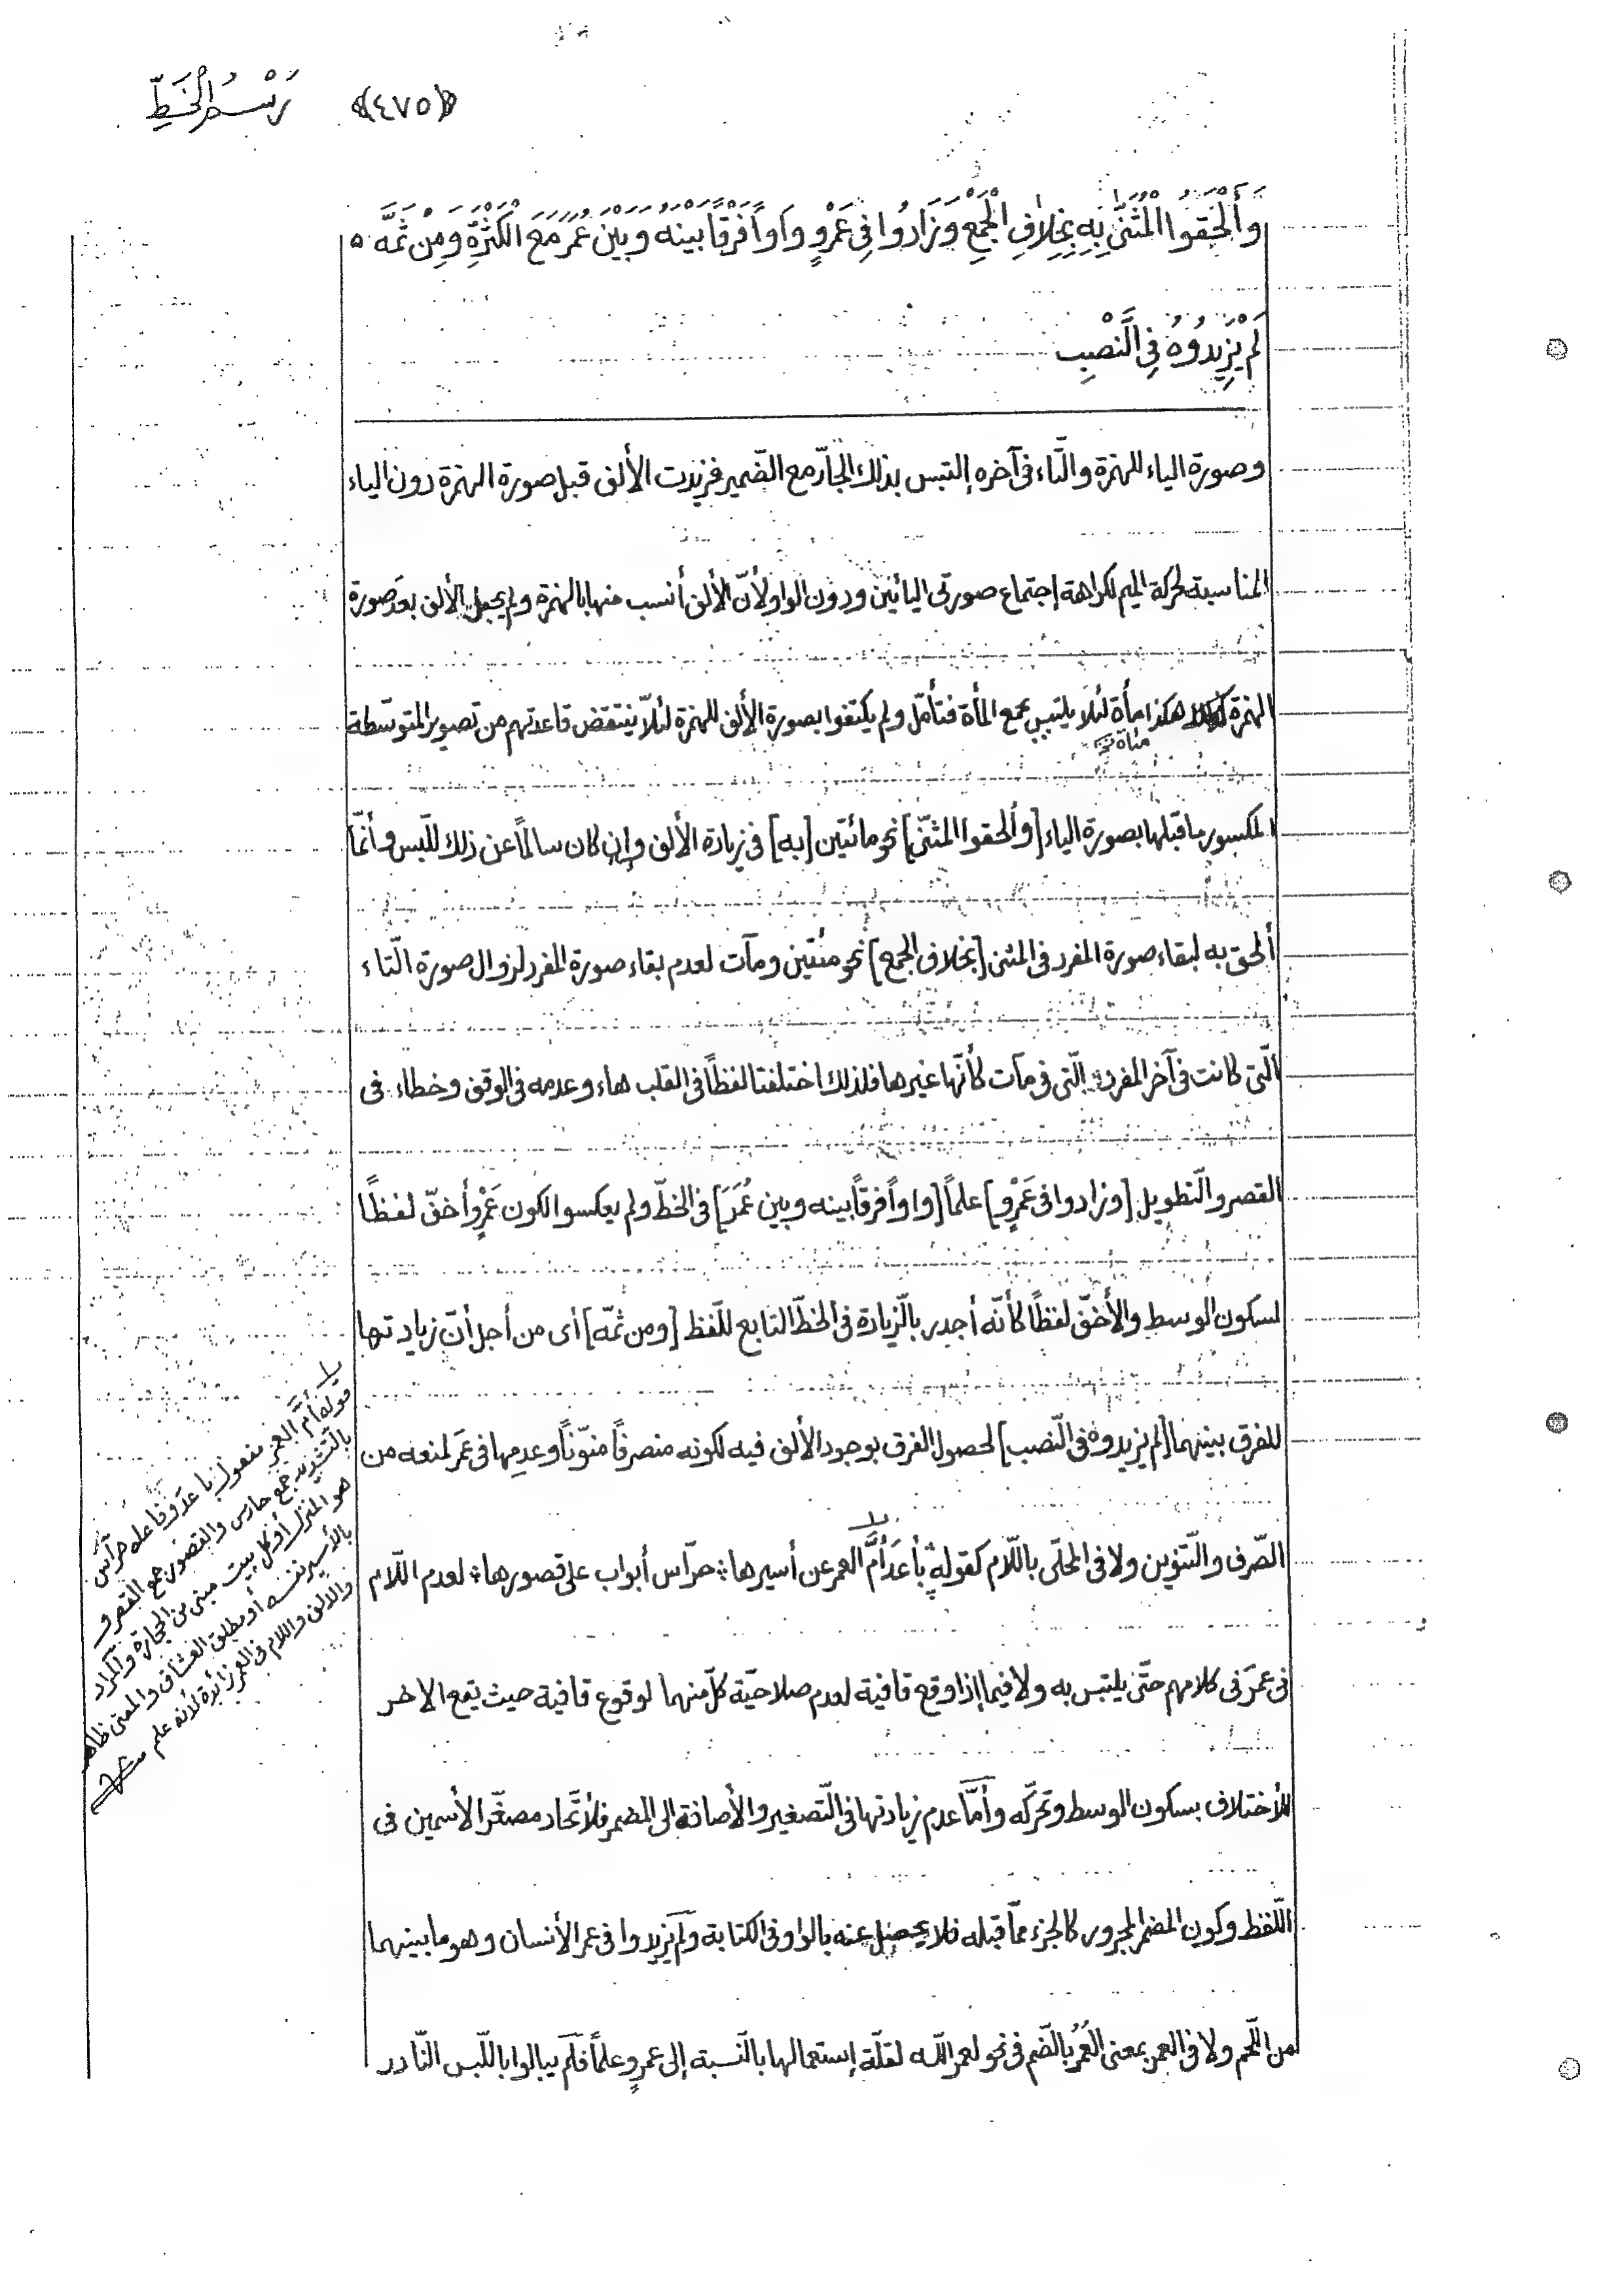 رَسْمُ الْخَطِّ ﴿٤٧٥﴾
وَأَلْحَقُوا الْمُثَنّٰى بِهِ بِخِلَافِ الْجَمْعِ وَزَادُوا فِي عَمْرٍو وَاوًا فَرْقًا بَيْنَهُ وَبَيْنَ عُمَرَ مَعَ الْكَثْرَةِ وَمِنْ ثَمَّه
لَمْ يَزِيدُوهُ فِي النَّصْبِ
وصورة الياء للهمزة والتّاء فى آخره إلتبس بذلك الجارّ مع الضّمير فزيدت الألف قبل صورة الهمزة دون الياء
المناسبة لحركة الميم لكراهة إجتماع صورتى اليائين ودون الواو لأنّ الألف أنسب منها بالهمزة ولم يجعل الألف بعد صورة
الهمزة هكذا مأة لئلّا يلتبس بجمع المأة فتأمّل ولم يكتفوا بصورة الألف للهمزة لئلّا ينتقض قاعدتهم من تصوير المتوسّطة
مئاة نخ
المكسور ما قبلها بصورة الياء [وألحقوا المثنّى] نحو مائتين [به] فى زيادة الألف وإن كان سالمًا عن ذلك اللّبس وأنّما
ألحق به لبقاء صورة المفرد فى المثنى [بخلاف الجمع] نحو مئتين ومآت لعدم بقاء صورة المفرد لزوال صورة التّاء
الّتى كانت فى آخر المفرد الّتى فى مآت كأنّها غيرها فلذلك اختلفتا لفظاً فى القلب هاء وعدمه فى الوقف وخطاء فى
القصر والتّطويل [وزادوا فى عَمْرٍو] علماً [واواً فرقاً بينه وبين عُمَرَ] فى الخطّ ولم يعكسوا لكون عَمْرٍو أخفّ لفظًا
لسكون الوسط والأخفّ لفظًا كأنّه أجدر بالزّيادة فى الخطّ التابع للّفظ [ومن ثمّه] أى من أجل أنّ زيادتها
للفرق بينهما [لم يزيدوه فى النّصب] لحصول الفرق بوجود الألف فيه لكونه منصرفًا منوّنًا وعدمها فى عمَر لمنعه من
الصّرف والتّنوين ولا فى المحلّى باللّام كقوله باعَدَ أُمَّ العمر عن أسيرها ؛ حرّاس أبواب على قصورها ؛ لعدم اللّام
فى عمَر فى كلامهم حتّى يلتبس به ولا فيما إذا وقع قافية لعدم صلاحيّة كلّ منهما لوقوع قافية حيث يقع الاخر
للأختلاف بسكون الوسط وتحرّكه وأمّا عدم زيادتها فى التّصغير والأضافة إلى المضمر فلأتّحاد مصغّر الأسمين فى
اللّفظ وكون المضمر المجرور كالجزء ممّا قبله فلا يحصل عنه بالواو فى الكتابة ولم يزيدوا فى عمر الأنسان وهو ما بينهما
من اللّحم ولا فى العمر بمعنى العُمُر بالضّم فى نحو لعمر اللّه لقلّة إستعمالها بالنّسبة إلى عمرٍو علماً فلم يبالوا باللّبس النّادر
قوله أمَّ العمر مفعول باعد وفاعله حرّاس
بالتّشديد جمع حارس والقصور جمع القصر و
هو المنزل أو كل بيت مبنى من الحجارة والمراد
بالأسير نفسه أو مطلق العشاق والمعنى ظاهر
والالف واللام فى العمر زائدة لأنه علم